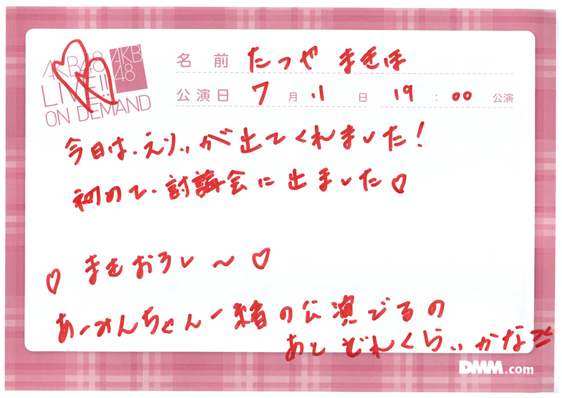 AKB48
LIVE!!
ON DEMAND
AKB
48
名前 たつや まきほ
公演日 7月1日 19:00 公演
今日は、えりぃが出てくれました!
初めて、討論会に出ました♡
♡ まきおろし〜♡
あーみんちゃん一緒の公演でるの
あとどれくらいかな
DMM.com